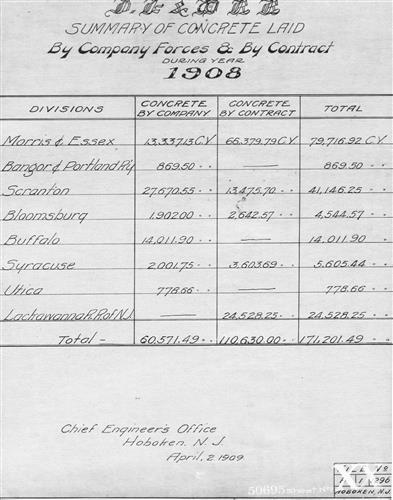 D. L. & W. R. R.
SUMMARY OF CONCRETE LAID
By Company Forces & By Contract
DURING YEAR
1908
DIVISIONS CONCRETE BY COMPANY CONCRETE BY CONTRACT TOTAL
Morris & Essex 13,337.13 C.Y. 66,379.79 C.Y. 79,716.92 C.Y.
Bangor & Portland Ry 869.50 " " — 869.50 " "
Scranton 27,670.55 " " 13,475.70 " " 41,146.25 " "
Bloomsburg 1,902.00 " " 2,642.57 " " 4,544.57 " "
Buffalo 14,011.90 " " — 14,011.90 "
Syracuse 2,001.75 " " 3,603.69 " " 5,605.44 " "
Utica 778.66 " " — 778.66 " "
Lackawanna R.R. of N.J. — 24,528.25 " " 24,528.25 " "
Total - 60,571.49 " " 110,630.00 " " 171,201.49 " "
Chief Engineer's Office
Hoboken, N. J.
April, 2, 1909
50695
HOBOKEN, N.J.